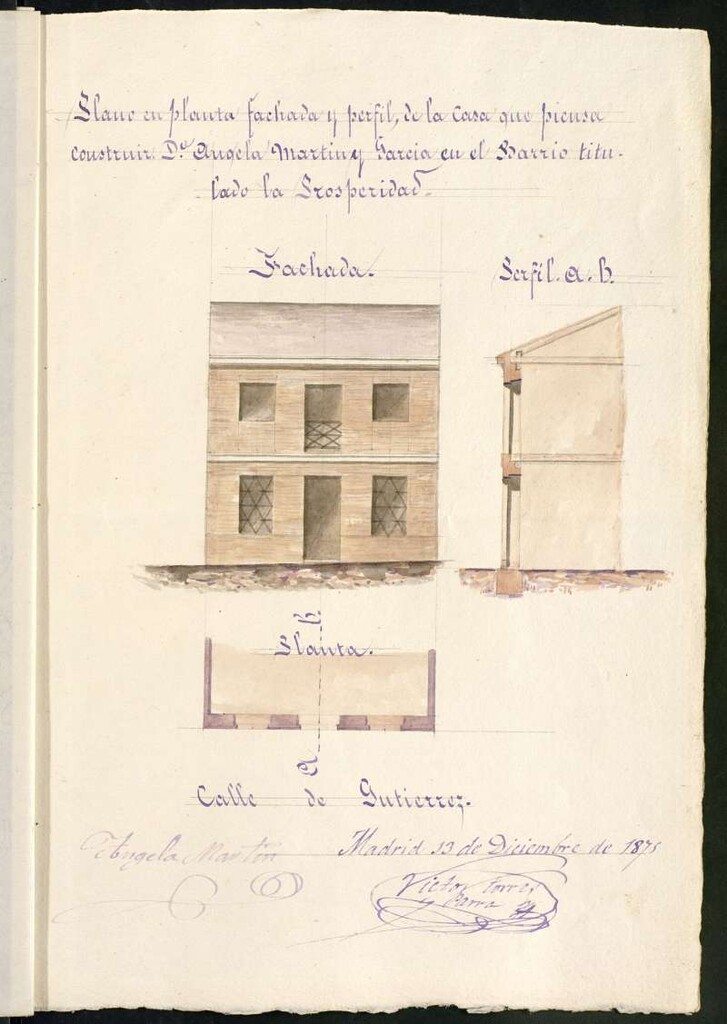 Plano en planta fachada y perfil, de la Casa que piensa
construir D.ª Angela Martin y Garcia en el Barrio titu-
lado la Prosperidad.
Fachada.
Perfil. A. b.
b
Planta.
A
Calle de Gutierrez.
Angela Martin
Madrid 13 de Diciembre de 1875
Victor Torres
Parra